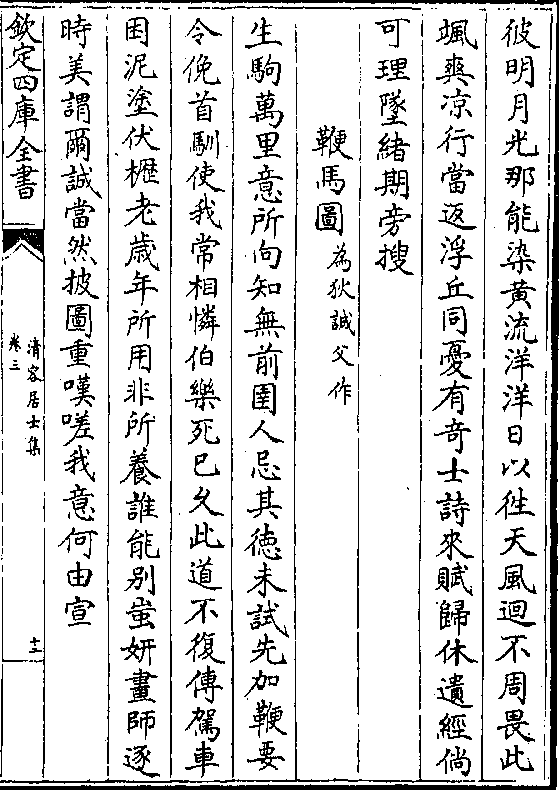 彼明月光那能染黄流洋洋日以徃天風迴不周畏此
颯爽凉行當返浮丘同憂有奇士詩來賦歸休遺經倘
可理墜緒期旁搜
鞭馬圖為狄誠父作
生駒萬里意所向知無前圉人忌其徳未試先加鞭要
令俛首馴使我常相憐伯樂死已乆此道不復傳駕車
困泥塗伏櫪老歳年所用非所養誰能别蚩妍畫師逐
時美謂爾誠當然披圖重嘆嗟我意何由宣
欽定四庫全書
清容居士集
卷三
十三